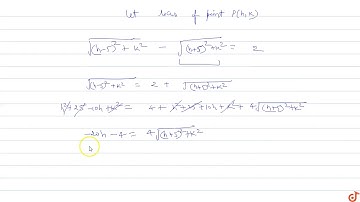 Let locus of point P(h,k)
√((h-5)² + k²) - √((h+5)² + k²) = 2
√((h-5)² + k²) = 2 + √((h+5)² + k²)
h² + 25 - 10h + k² = 4 + h² + 25 + 10h + k² + 4√((h+5)² + k²)
-20h - 4 = 4√((h+5)² + k²)